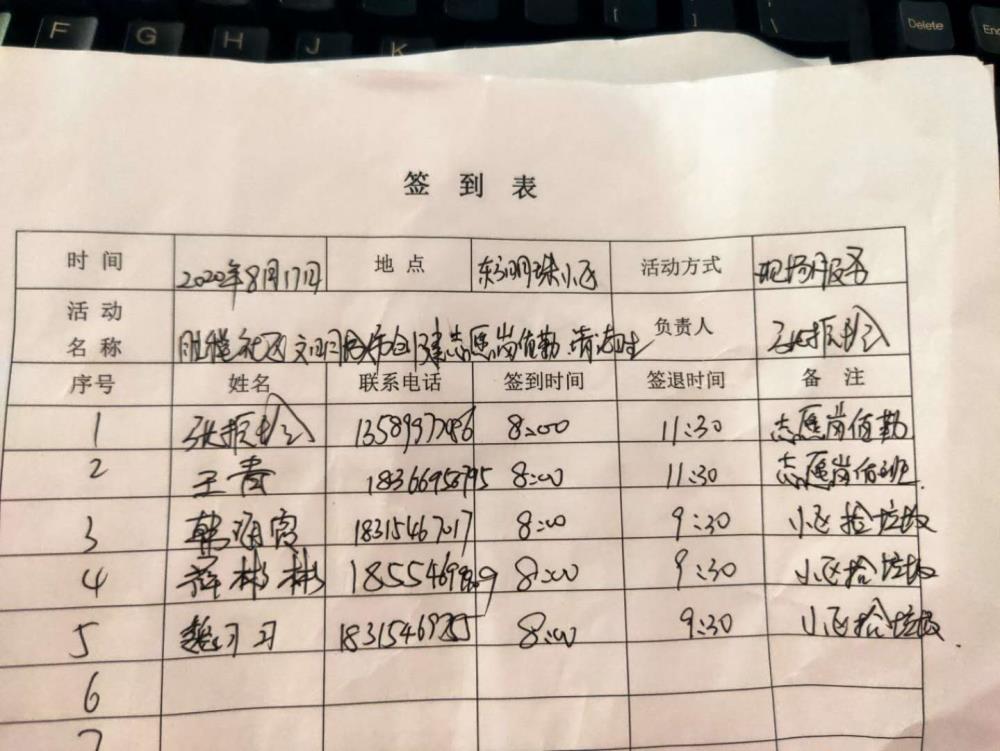 F G H J K Delete End
签到表
时间 2022年8月17日 地点 东方明珠小区 活动方式 现场服务
活动名称 社区文明 志愿岗值勤 清卫生 负责人 张振
序号 姓名 联系电话 签到时间 签退时间 备注
1 张振 8:00 11:30 志愿岗值勤
2 王青 8:00 11:30 志愿岗值班
3 韩 18315467017 8:00 9:30 小区捡垃圾
4 薛彬彬 8:00 9:30 小区捡垃圾
5 魏习习 8:00 9:30 小区捡垃圾
6
7